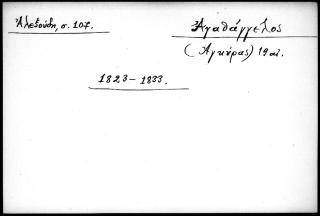 Ἀλεξούδη, σ. 107.
Ἀγαθάγγελος
(Ἀγκύρας) 19 αἰ.
1823 – 1833.